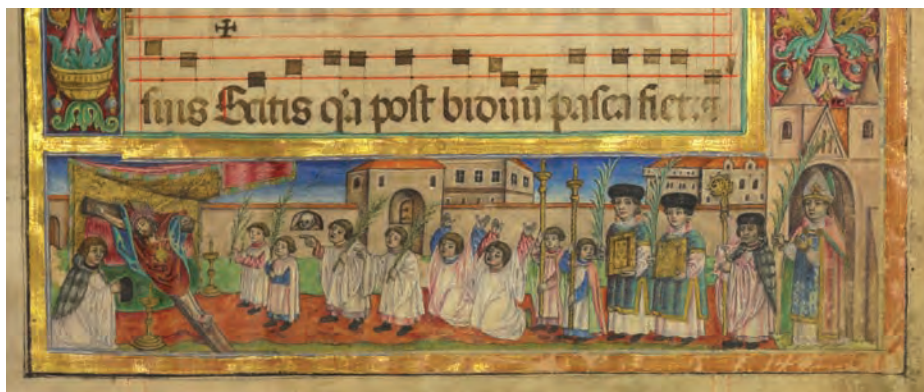 suis Scitis q̇a post biduū pasca fiet: ⁊